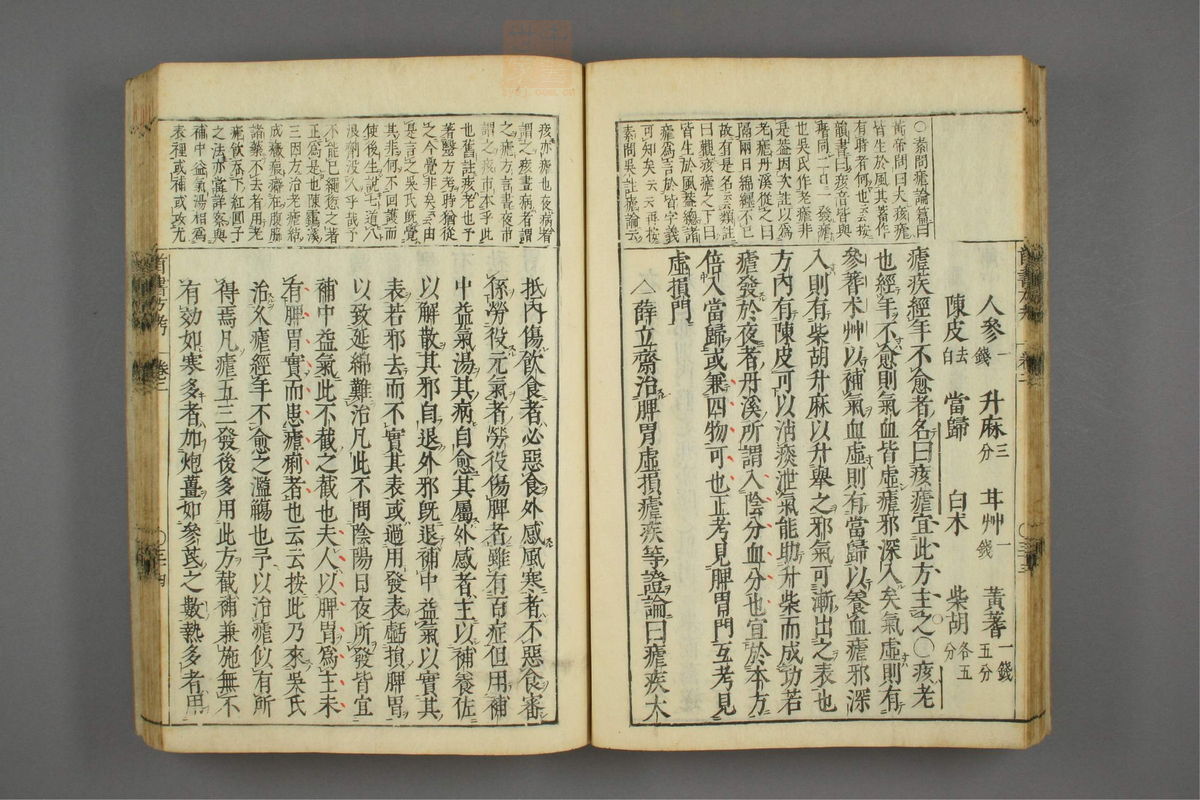 ○素問瘧論篇曰
黃帝問曰夫痎瘧
皆生於風其蓄作
有時者何也云云按
韻書曰痎音皆與
痎瘧
也吳氏作老瘧非
是蓋因次註以爲
老瘧丹溪從之曰
隔兩日綿纏不已
故有是名云云類註
曰觀痎瘧之下曰
皆生於風蓋總諸
瘧爲言於皆字義
可知矣云云再按
素問吳註瘧論云
人參一錢 升麻三分 甘艸一錢 黃蓍一錢五分
陳皮去白 當歸 白朮 柴胡各五分
瘧疾經年不愈者名曰痎瘧宜此方主之○痎老
也經年不愈則氣血皆虛瘧邪深入矣氣虛則有
參蓍朮艸以補氣血虛則有當歸以養血瘧邪深
入則有柴胡升麻以升舉之邪氣可漸出之表也
方內有陳皮可以消痰泄氣能助升柴而成功若
瘧發於夜者丹溪所謂入陰分血分也宜於本方
倍入當歸或兼四物可也正考見脾胃門互考見
虛損門
△薛立齋治脾胃虛損瘧疾等證論曰瘧疾大
痎亦瘧也夜病者
謂之痎晝病者謂
之瘧方言晝夜市
謂之痎市本乎此
也舊註痎老也予
著醫方考時猶從
之今覺非矣云云由
是言之吳氏既覺
其非何不回護而
使後生說七道八
浪痢沒入乎哉予
不能已繩愆之著
正爲是也陳藹溪
三因方治老瘧綿
成癥瘕癖在腹脇
諸藥不去者用老
瘧飲吞下紅圓子
之法亦當詳察與
補中益氣湯相爲
表裡或補或攻尤
抵內傷飲食者必惡食外感風寒者不惡食審
係勞役元氣者勞役傷脾者雖有百症但用補
中益氣湯其病自愈其屬外感者主以補養佐
以解散其邪自退外邪既退補中益氣以實其
表若邪去而不實其表或過用發表虧損脾胃
以致延綿難治凡此不問陰陽日夜所發皆宜
補中益氣此不截之截也夫人以脾胃爲主未
有脾胃實而患瘧痢者也云云按此乃來吳氏
治久瘧經年不愈之濫觴也予以治瘧似有所
得焉凡瘧五三發後多用此方截補兼施無不
有効如寒多者加炮薑如參芪之數熱多者用